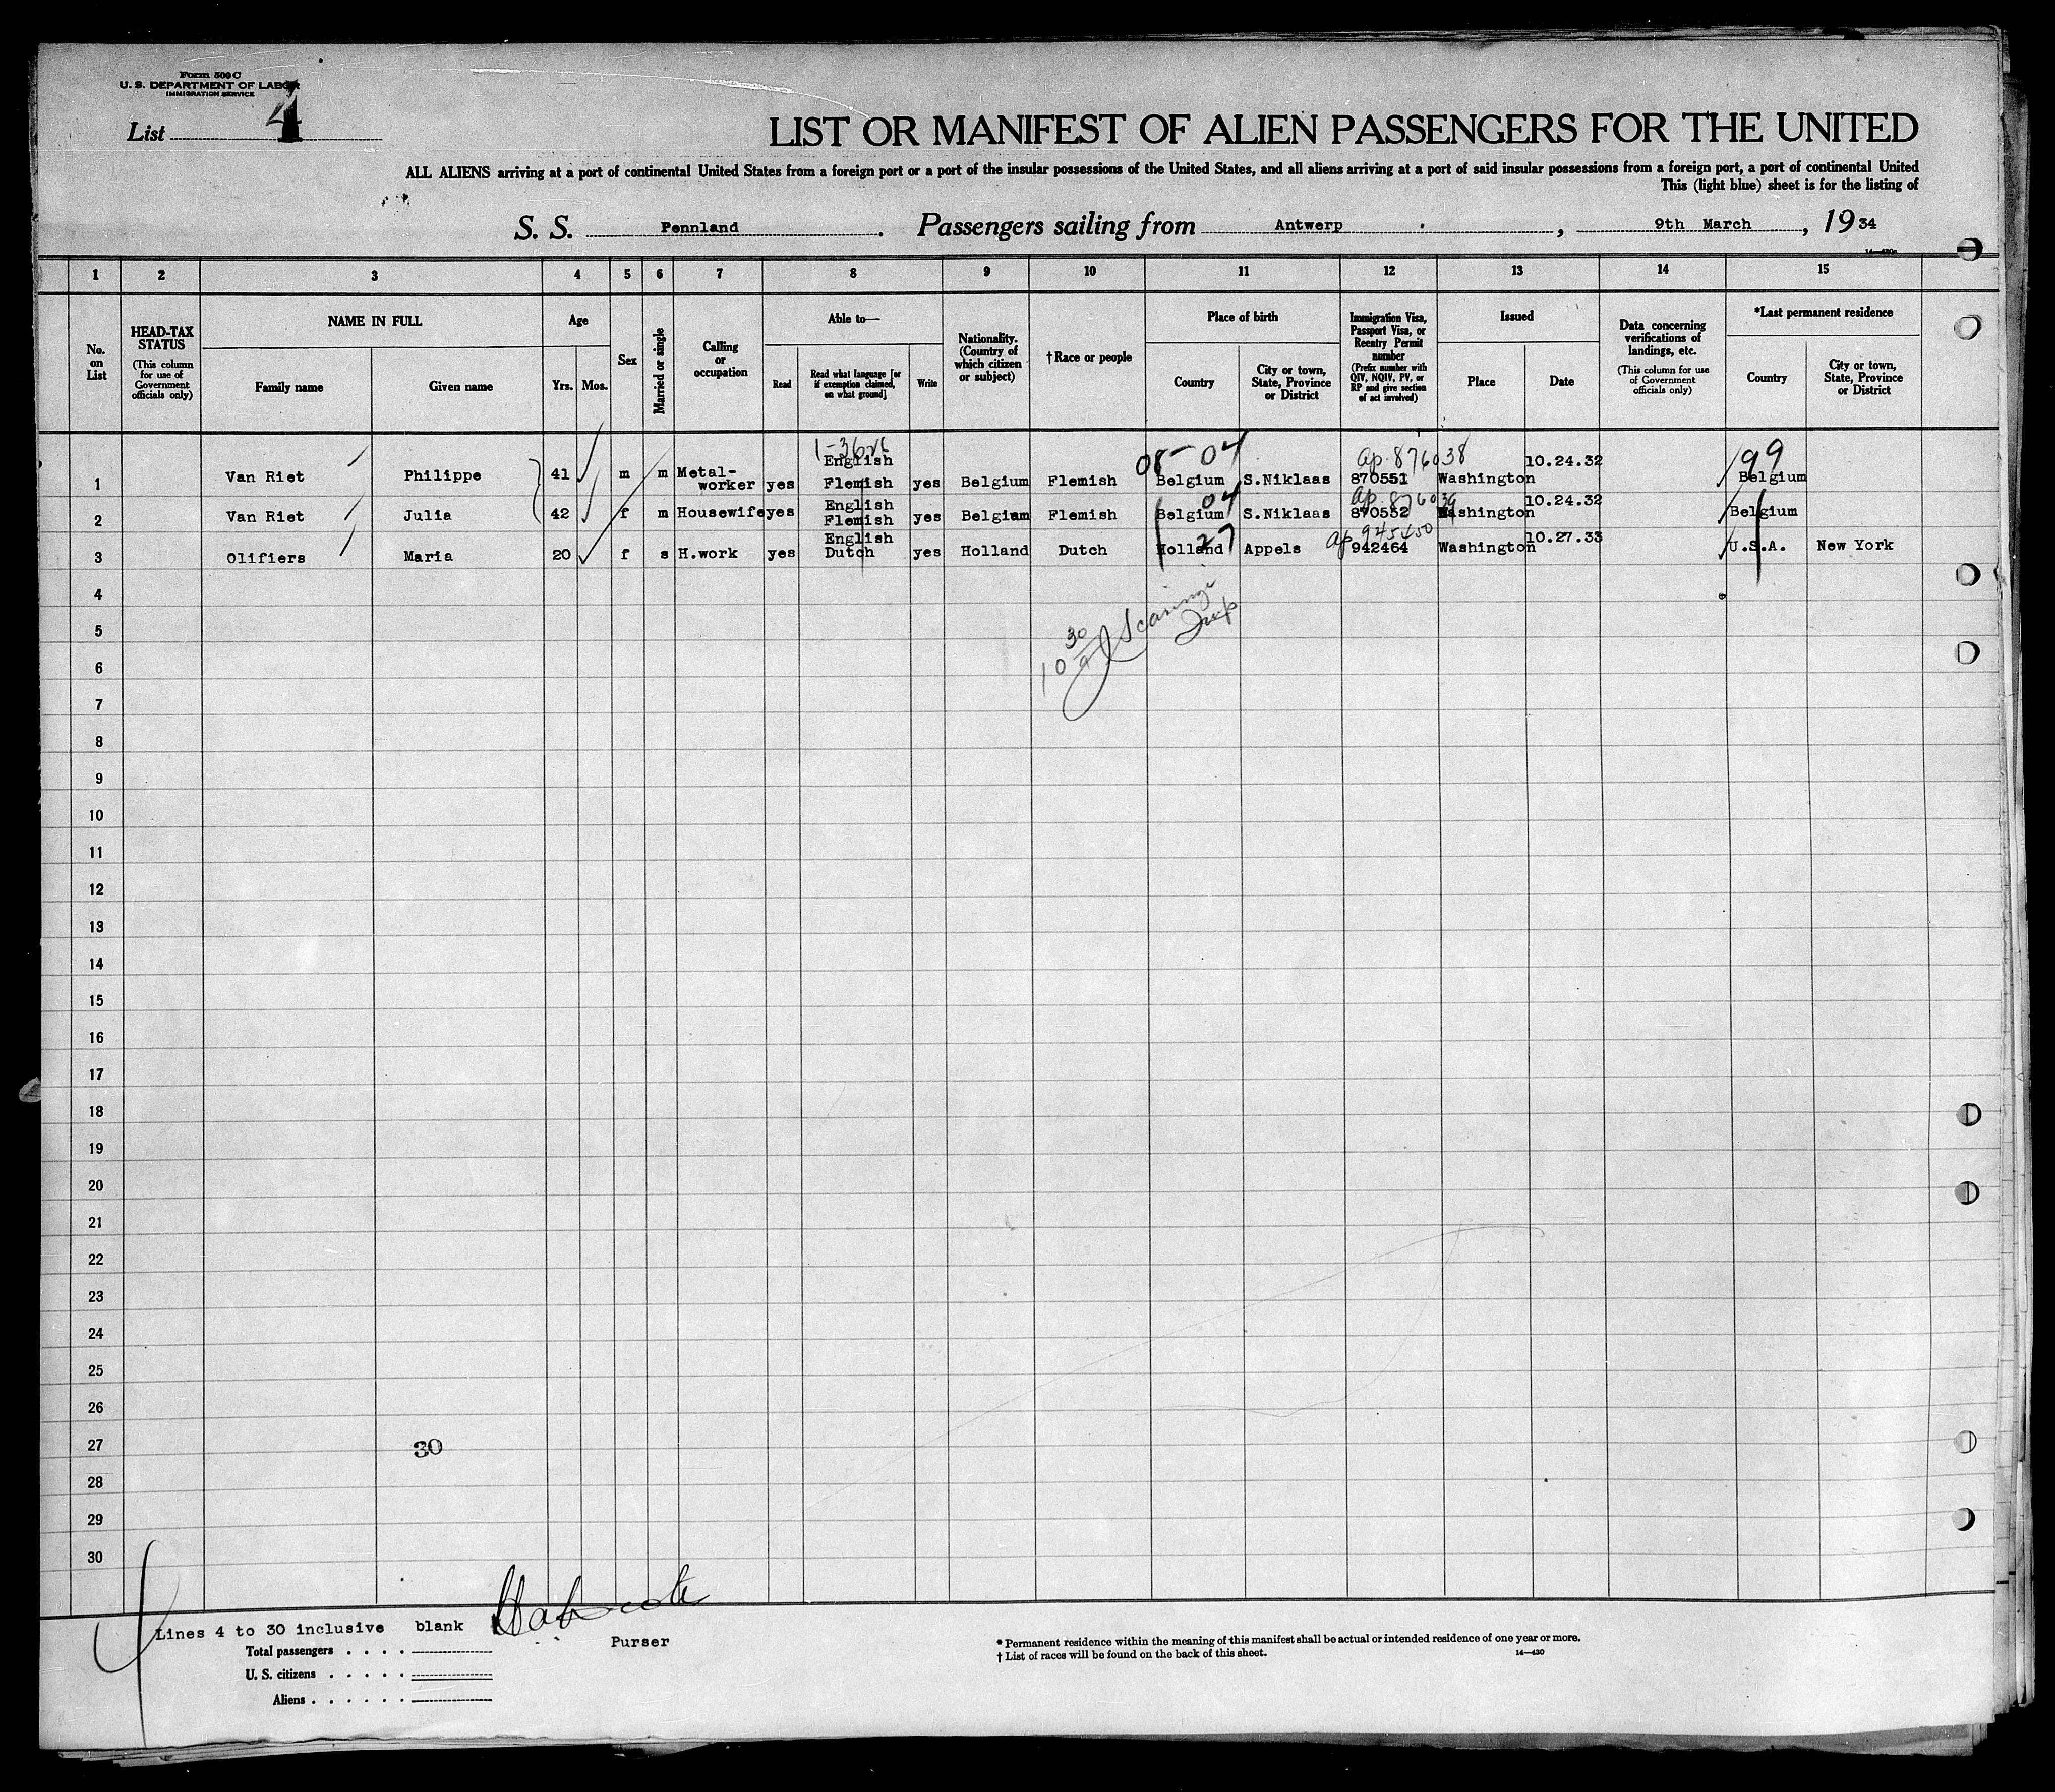 Form 500 C
U. S. DEPARTMENT OF LABOR
IMMIGRATION SERVICE
List 4
LIST OR MANIFEST OF ALIEN PASSENGERS FOR THE UNITED
ALL ALIENS arriving at a port of continental United States from a foreign port or a port of the insular possessions of the United States, and all aliens arriving at a port of said insular possessions from a foreign port, a port of continental United
This (light blue) sheet is for the listing of
S. S. Pennland. Passengers sailing from Antwerp, 9th March, 1934
14—430a
1 2 3 4 5 6 7 8 9 10 11 12 13 14 15
No. on List
HEAD-TAX STATUS
(This column for use of Government officials only)
NAME IN FULL
Family name
Given name
Age
Yrs. Mos.
Sex
Married or single
Calling or occupation
Able to—
Read
Read what language [or if exemption claimed, on what ground]
Write
Nationality. (Country of which citizen or subject)
†Race or people
Place of birth
Country
City or town, State, Province or District
Immigration Visa, Passport Visa, or Reentry Permit number
(Prefix number with QIV, NQIV, PV, or RP and give section of act involved)
Issued
Place
Date
Data concerning verifications of landings, etc.
(This column for use of Government officials only)
*Last permanent residence
Country
City or town, State, Province or District
05-04 ap. 876038 99
1 Van Riet Philippe 41 m m Metal-worker yes English Flemish yes Belgium Flemish Belgium S.Niklaas 870551 Washington 10.24.32 Belgium
04 ap. 876039
2 Van Riet Julia 42 f m Housewife yes English Flemish yes Belgium Flemish Belgium S.Niklaas 870552 Washington 10.24.32 Belgium
27 ap 945450
3 Olifiers Maria 20 f s H.work yes English Dutch yes Holland Dutch Holland Appels 942464 Washington 10.27.33 U.S.A. New York
4
5
10 30
6
7
8
9
10
11
12
13
14
15
16
17
18
19
20
21
22
23
24
25
26
27 30
28
29
30
Lines 4 to 30 inclusive blank
Purser
Total passengers . . . .
U. S. citizens . . . . .
Aliens . . . . . .
* Permanent residence within the meaning of this manifest shall be actual or intended residence of one year or more.
† List of races will be found on the back of this sheet.
14—430